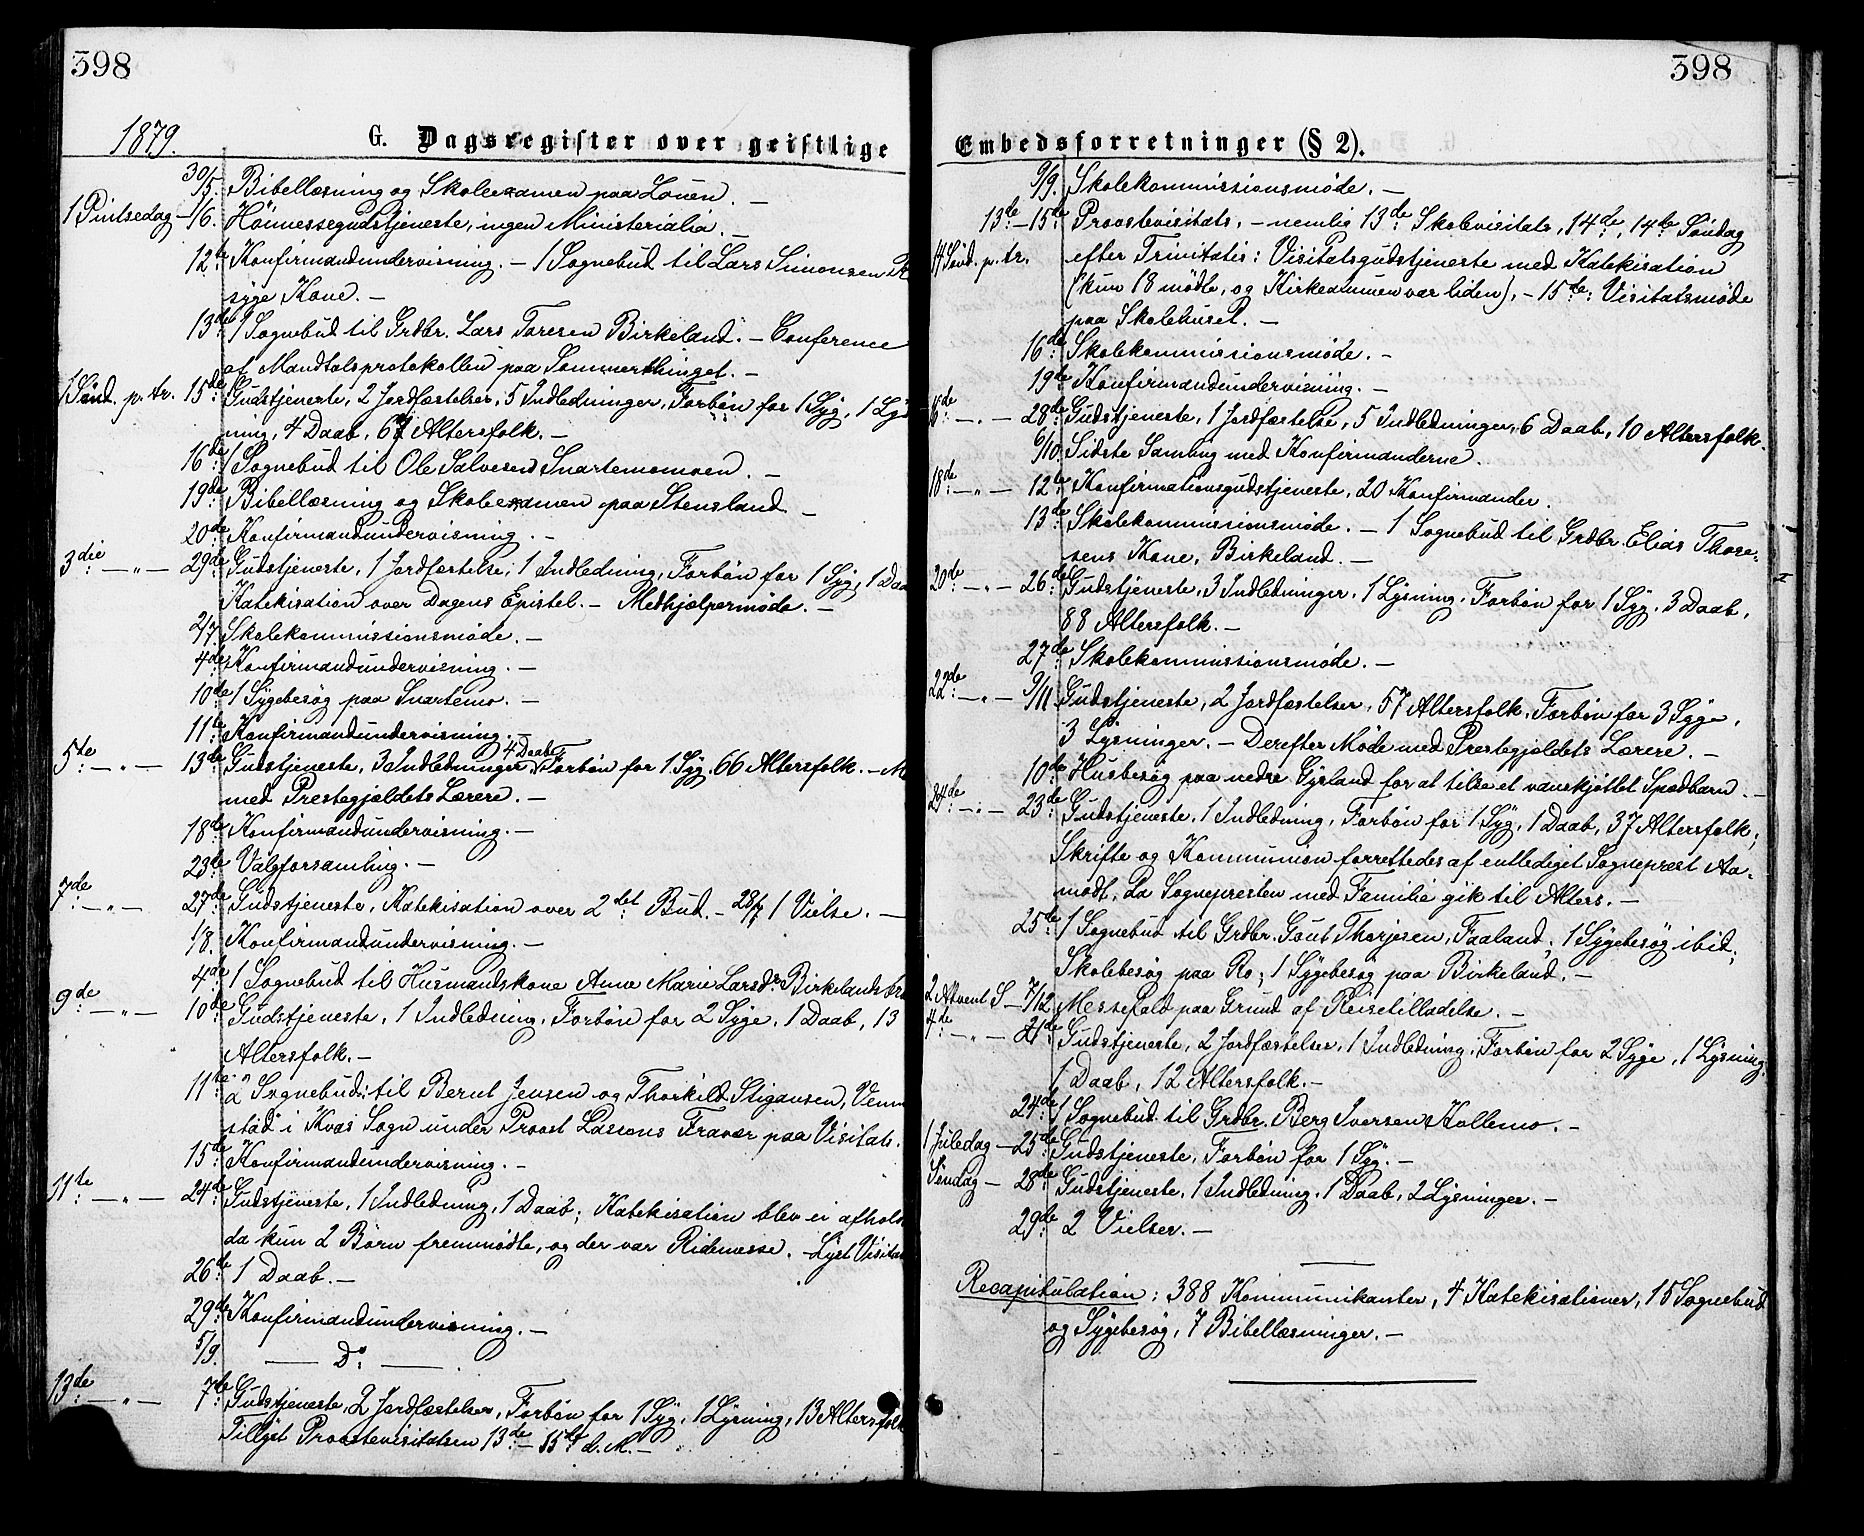 398
1879.
G. Dagsregister over geistlige
30/5. Bibellæsning og Skoleexamen paa Louen. —
1 Pintsedag — 1/6. Höimessegudstjeneste, ingen Ministerialia. —
12te Konfirmandundervisning. — 1 Sognebud til Lars Simonsen
syge Kone. —
13de 1 Sognebud til Grdbr. Lars Toresen Birkeland. — Conference
af Mandtalsprotokollen paa Sommerthinget. —
1 Sönd. p. tr. 15de Gudstjeneste, 2 Jordfæstelser, 5 Indledninger, Forbön for 1 Syg, 1 Lys
ning, 4 Daab, 67 Altersfolk. —
16de 1 Sognebud til Ole Salvesen Snartemomoen. —
19de Bibellæsning og Skoleexamen paa Stensland —
20de Konfirmandundervisning. —
3die — „ — 29de Gudstjeneste, 1 Jordfæstelse, 1 Indledning, Forbön for 1 Syg, 1 Daa
Katekisation over Dagens Epistel. — Medhjælpermöde. —
2/7. Skolekommissionsmöde. —
4de Konfirmandundervisning. —
10de 1 Sygebesög paa Snartemo. —
11te Konfirmandundervisning. —
4 Daab
5te — „ — 13de Gudstjeneste, 3 Indledninger, Forbön for 1 Syg, 66 Altersfolk. — M
med Prestegjældets Lærere. —
18de Konfirmandundervisning. —
23de Valgforsamling. —
7de — „ — 27de Gudstjeneste, Katekisation over 2det Bud. — 28/7 1 Vielse. —
1/8. Konfirmandundervisning. —
4de 1 Sognebud til Husmandskone Anne Marie Larsdr. Birkelands
9de — „ — 10de Gudstjeneste, 1 Indledning, Forbön for 2 Syge, 1 Daab, 13
Altersfolk. —
11te 2 Sognebud: til Bernt Jensen og Thorkild Stigansen, Venne
stad i Kvas Sogn under Provst Lassons Fravær paa Visitats.
15de Konfirmandundervisning. —
11te — „ — 24de Gudstjeneste, 1 Indledning, 1 Daab; Katekisation blev ei afhol
da kun 2 Börn fremmödte, og der var Ridemesse. — Lyst Visita
26de 1 Daab. —
29de Konfirmandundervisning. —
5/9. — Do —
13de — „ — 7de Gudstjeneste, 2 Jordfæstelser, Forbön for 1 Syg, 1 Lysning, 13 Altersfolk
Tillyst Provstevisitatsen 13de — 15de d. M. —
398
Embedsforretninger (§ 2).
9/9. Skolekommissionsmöde. —
13de — 15de Provstevisitats, — nemlig 13de Skolevisitats, 14de, 14de Söndag
14 Sönd. p. tr. efter Trinitatis: Visitatsgudstjeneste med Katekisation
(kun 18 mödte, og Kirkeammen var liden), — 15de: Visitatsmöde
paa Skolehuset. —
16de Skolekommissionsmöde. —
19de Konfirmandundervisning. —
16de — „ — 28de Gudstjeneste, 1 Jordfæstelse, 5 Indledninger, 6 Daab, 10 Altersfolk.
6/10 Sidste Samling med Konfirmanderne.
18de — „ — 12te Konfirmationsgudstjeneste, 20 Konfirmander.
13de Skolekommissionsmöde. — 1 Sognebud til Grdbr. Elias Thore-
sens Kone, Birkeland. —
20de — „ — 26de Gudstjeneste, 3 Indledninger, 1 Lysning, Forbön for 1 Syg, 3 Daab,
88 Altersfolk. —
27de Skolekommissionsmöde. —
22de — „ — 9/11 Gudstjeneste, 2 Jordfæstelser, 57 Altersfolk, Forbön for 3 Syge,
3 Lysninger. — Derefter Möde med Prestegjældets Lærere. —
10de Husbesög paa nedre Gysland for at tilse et vanskjöttet Spædbarn. —
24de — „ — 23de Gudstjeneste, 1 Indledning, Forbön for 1 Syg, 1 Daab, 37 Altersfolk;
Skrifte og Kommunion forrettedes af entlediget Sogneprest Aa-
modt, da Sognepresten med Familie gik til Alters. —
25de 1 Sognebud til Grdbr. Gout Thorjesen, Faaland, 1 Sygebesög ibid;
Skolebesög paa Ro; 1 Sygebesög paa Birkeland. —
2 Advent S — 7/12 Messefald paa Grund af Reisetilladelse. —
4de — „ — 21de Gudstjeneste, 2 Jordfæstelser, 1 Indledning, Forbön for 2 Syge, 1 Lysning,
1 Daab, 12 Altersfolk. —
24de 1 Sognebud til Grdbr. Berg Iversen Hollemo. —
1 Juledag — 25de Gudstjeneste, Forbön for 1 Syg. —
Söndag — 28de Gudstjeneste, 1 Indledning, 1 Daab, 2 Lysninger. —
29de 2 Vielser. —
Recapitulation: 388 Kommunikanter, 4 Katekisationer, 15 Sognebud
og Sygebesög, 7 Bibellæsninger. —